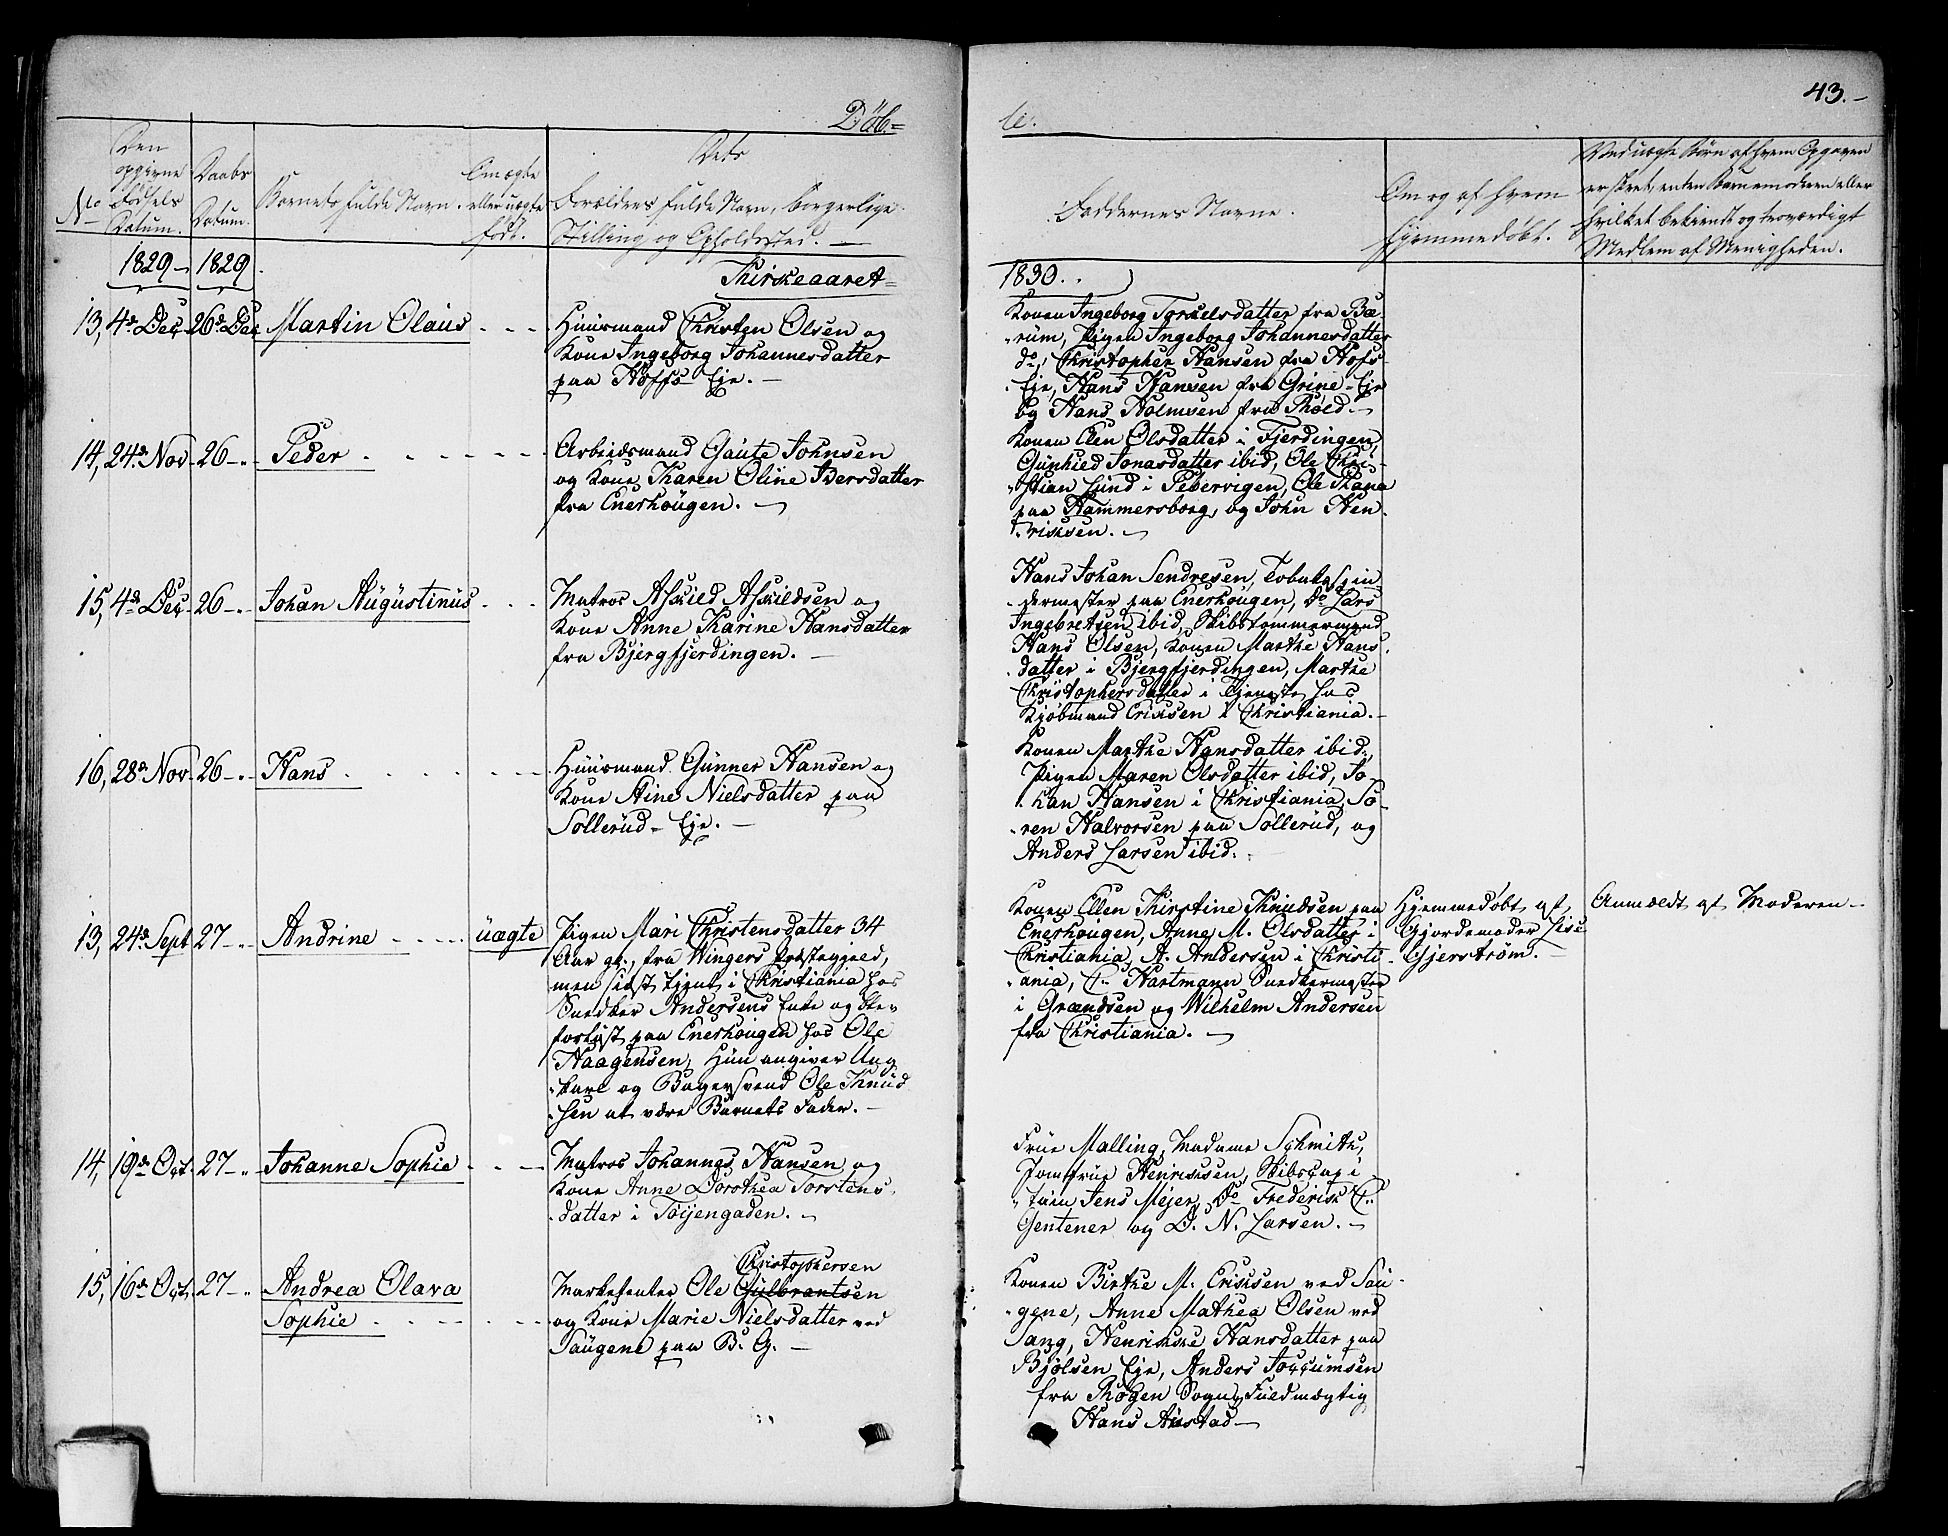 Döb=
te.
43.
No
Den
opgivne
Födsels
Datum.
Daabs
Datum.
Barnets fulde Navn.
Om ægte
eller uægte
födt.
Dets
Forældres fulde Navn, borgerlige
Stilling og Opholdssted.
Faddernes Navne.
Om og af hvem
hjemmedöbt.
Ved uægte Börn af hvem Opgaven
er skeet, enten Barnemoderen eller
hvilket bekiendt og troværdigt
Medlem af Menigheden.
1829 1829
Kirkeaaret
1830.
13, 4de Dec 26de Dec Martin Olaus
Huusmand Christen Olsen og
Kone Ingeborg Johannesdatter
paa Hoffs Eje.
Konen Ingeborg Torkelsdatter fra Bæ-
rum, Pigen Ingeborg Johannesdatter
do, Christopher Hansen fra Hofs-
Eje, Hans Hansen fra Grine-Eje
og Hans Holmsen fra
14, 24de Nov 26 Peder
Arbeidsmand Gaute Johnsen
og Kone Karen Oline Iversdatter
fra Enerhougen.
Konen Elen Olsdatter i Fjerdingen,
Gunhied Jonasdatter ibid, Ole Chri-
stian Lund i Pebervigen, Ole
paa Hammersborg, og John Hen-
riksen.
15, 4de Dec 26 Johan Augustinus
Matros Aschild Aschildsen og
Kone Anne Karine Hansdatter
fra Bjergfjerdingen.
Hans Johan Sendresen, Tobakspin-
dermester paa Enerhougen, Do Lars
Ingebretsen ibid, Skibstømmermand
Hans Olsen, Konen Marthe Hans-
datter i Bjergfjerdingen, Marthe
Christophersdatter i Tjeneste hos
Kjøbmand Ericksen i Christiania.
16, 28de Nov 26 Hans
Huusmand Gunner Hansen og
Kone Stine Nielsdatter paa
Sollerud-Eje.
Konen Marthe Hansdatter ibid,
Pigen Maren Olsdatter ibid, Jo-
han Hansen i Christiania, Sö-
ren Halvorsen paa Sollerud, og
Anders Larsen ibid.
13, 24de Sept 27 Andrine uægte
Pigen Mari Christensdatter 34
Aar gl., fra Wingers Præstegjeld,
men sidst tjent i Christiania hos
Snedker Andersens Enke og
forløst paa Enerhougen hos Ole
Haagensen, Hun angiver Ung-
karl og Bagersvend Ole Knud-
sen at være Barnets Fader.
Konen Ellen Kirstine Knudsen paa
Enerhougen, Anne M. Olsdatter i
Christiania, A. Andersen i Christi-
ania, C. Hartmann Snedkermester
i Grændsen og Wilhelm Andersen
fra Christiania.
Hjemmedøbt af
Gjordemoder Lise
Gjerstrøm.
Anmeldt af Moderen
14, 19de Oct. 27 Johanne Sophie
Matros Johannes Hansen og
Kone Anne Dorothea Torstens-
datter i Töijengaden.
Frue Malling, Madame Schmith,
Jomfrue Henriksen, Skibscapi-
tain Jens Mejer, Do Frederick C.
Gentener og D. N. Larsen.
15, 16de Oct. 27 Andrea Olava
Sophie
Christophersen
Markefenter Ole Gulbrantsen
og Kone Marie Nielsdatter ved
Saugene paa B. G.
Konen Birthe M. Ericksen ved Sau-
gene, Anne Mathea Olsen ved
Sang, Henrikke Hansdatter paa
Bjölsen Eje, Anders Joccumsen
fra Sogn, Fuldmægtig
Hans Austad